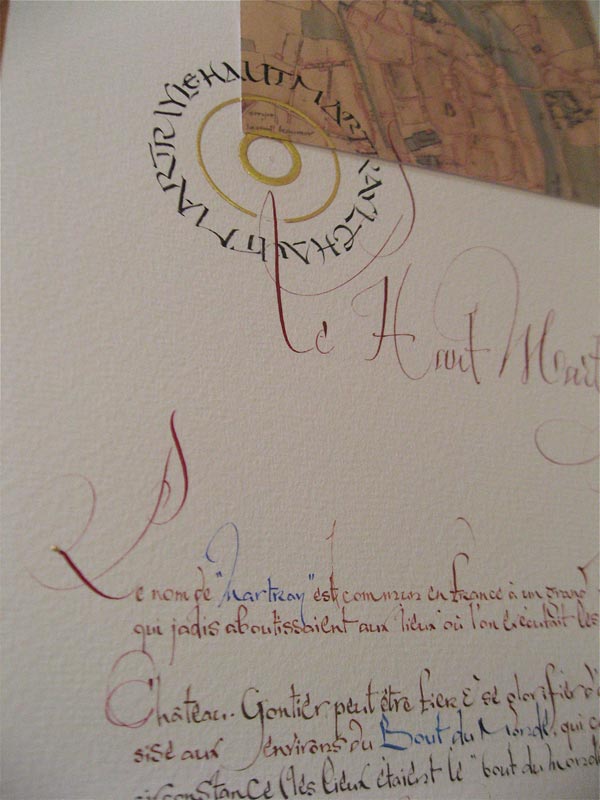 LE HAUT MARTRAY LE HAUT MARTRAY
Le Haut Mart
Le nom de "Martray" est commun en France à un grand
qui jadis aboutissaient aux "lieux" où l'on exécutait les
Château-Gontier peut être fier & se glorifier d'
sise aux environs du Bout du Monde, qui
circonstance (les lieux étaient le "bout du monde